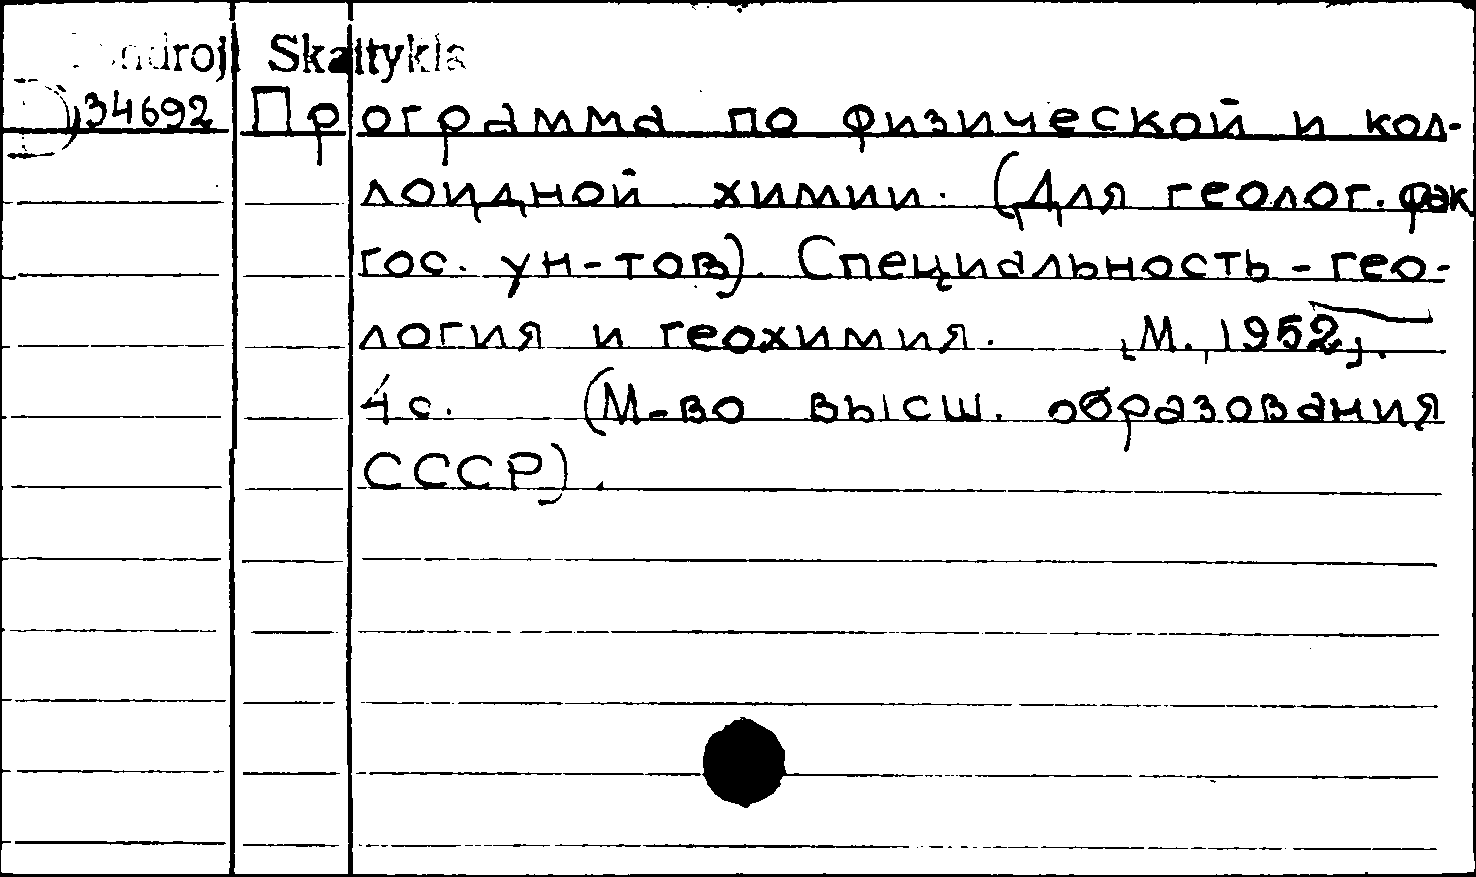 Skaitykla
34692 Программа по физической и кол-
лоидной химии. (Для геолог. фак
гос. ун-тов). Специальность - гео-
логия и геохимия. [М., 1952].
4 с. (М-во высш. образования
СССР).